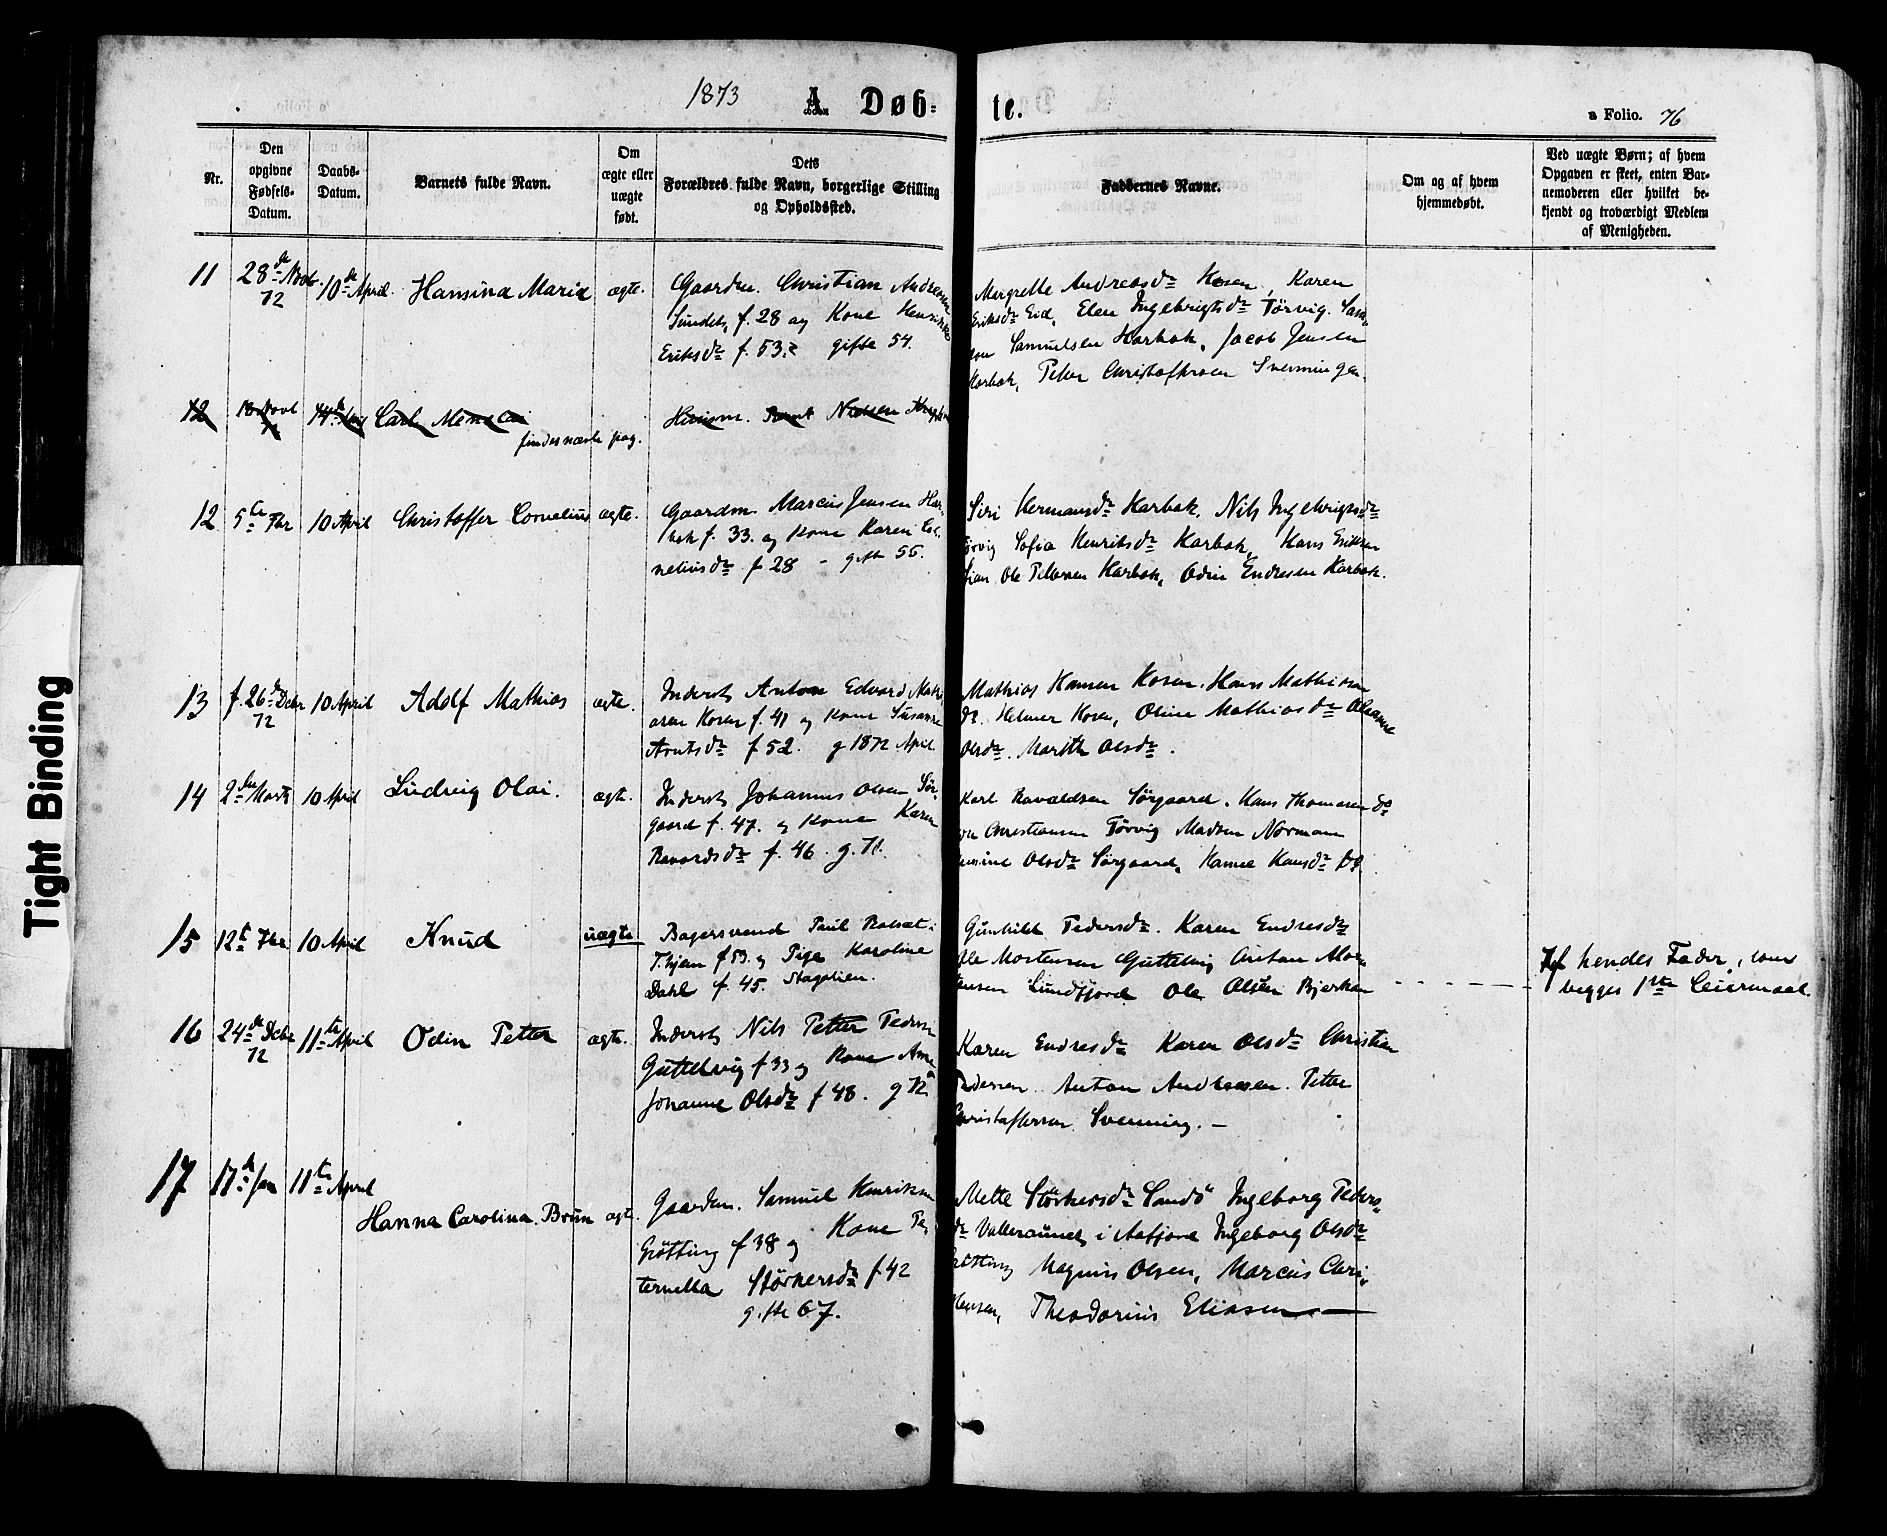 1873
A. Døb-
te.
a Folio. 76
Nr.
Den opgivne Fødsels-Datum.
Daabs-Datum.
Barnets fulde Navn.
Om ægte eller uægte født.
Dets Forældres fulde Navn, borgerlige Stilling og Opholdssted.
Faddernes Navne.
Om og af hvem hjemmedøbt.
Ved uægte Børn; af hvem Opgaven er skeet, enten Barnemoderen eller hvilket bekjendt og troværdigt Medlem af Menigheden.
11
28de Novbr. 72
10de April.
Hansina Maria
ægte.
Gaardm. Christian Andresen
Sundet, f. 28 og Kone Henrikke
Eriksdr f. 53. gifte 54.
Margrethe Andreasdr Hosen, Karen
Eriksdr Eid, Elen Ingebrigtsdr Tørvig.
Samuelsen Harbak, Jacob Jensen
Harbak, Peter Christoffersen Svenningen.
12
Carl
findes næste pag.
Husm. Nielsen
12
5te Fbr
10 April
Christoffer Cornelius
ægte.
Gaardm. Marcus Jensen Har-
bak f. 33. og Kone Karen Cor-
neliusdr f. 28 - gifte 55.
Siri Hermansdr Harbak, Nils Ingebrigtsdr
Tørvig Sofia Henriksdr Harbak, Hans Eriksen
Ole Petersen Harbak, Odin Endresen Harbak.
13
f. 26de Decbr 72
10 April
Adolf Mathias
ægte.
Inderst Anton Edvard Mathi-
asen Hosen f. 41 og Kone Susanne
Arntsdr f 52. g 1872 April.
Mathias Hansen Hosen. Hans Mathiasen
do. Helmer Hosen, Oline Mathiasdr
Olsdr. Marith Olsdr.
14
2den Marts
10 April
Ludvig Olai.
ægte.
Inderst Johannes Olsen Sør-
gaard f. 47. og Kone Karen
Ravaldsdr f. 46. g. 71.
Karl Ravaldsen Sørgaard. Hans Thomasen do
Christiansen Tørvig Madsen Normann
Olsdr Sørgaard, Hanne Hansdr Do.
15
12t Fbr
10 April
Knud
uægte
Bagersvend Paul
f 53. og Pige Karoline
Dahl f. 45.
Gunhild Pedersdr. Karen Endresdr
Ole Mortensen Guttelvig Anton Mor-
tensen Sundfjord Ole Olsen Bjerkan
Af hendes Fader, som
begges 1ste Leiermaal.
16
24de Decbr 72
11te April
Odin Petter
ægte.
Inderst Nils Petter Pedersen
Guttelvig f 33 og Kone Anne
Johanne Olsdr f 48. g 72
Karen Endresdr Karen Olsdr Christian
Pedersen Anton Andreasen. Petter
Christoffersen Svenning. -
17
17de Jan
11te April
Hanna Carolina Brun
ægte.
Gaardm. Samuel Henriksen
Grøtting f 38 og Kone Pe-
ternella Størkersdr f. 42
gifte 67.
Mette Størkersdr Sandø Ingeborg Peders-
dr Vallersund i Aafjord Ingeborg Olsdr
Grøtting Magnus Olsen, Marcus Chri-
stensen, Theodorius Eliasen
Tight Binding